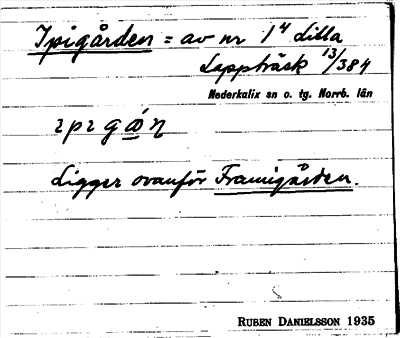 Ipigården = av nr 1⁴ Lilla
Lappträsk 13/384
Nederkalix sn o. tg. Norrb. län
ıpıgɷ́ɳ
Ligger ovanför Framigården.
RUBEN DANIELSSON 1935